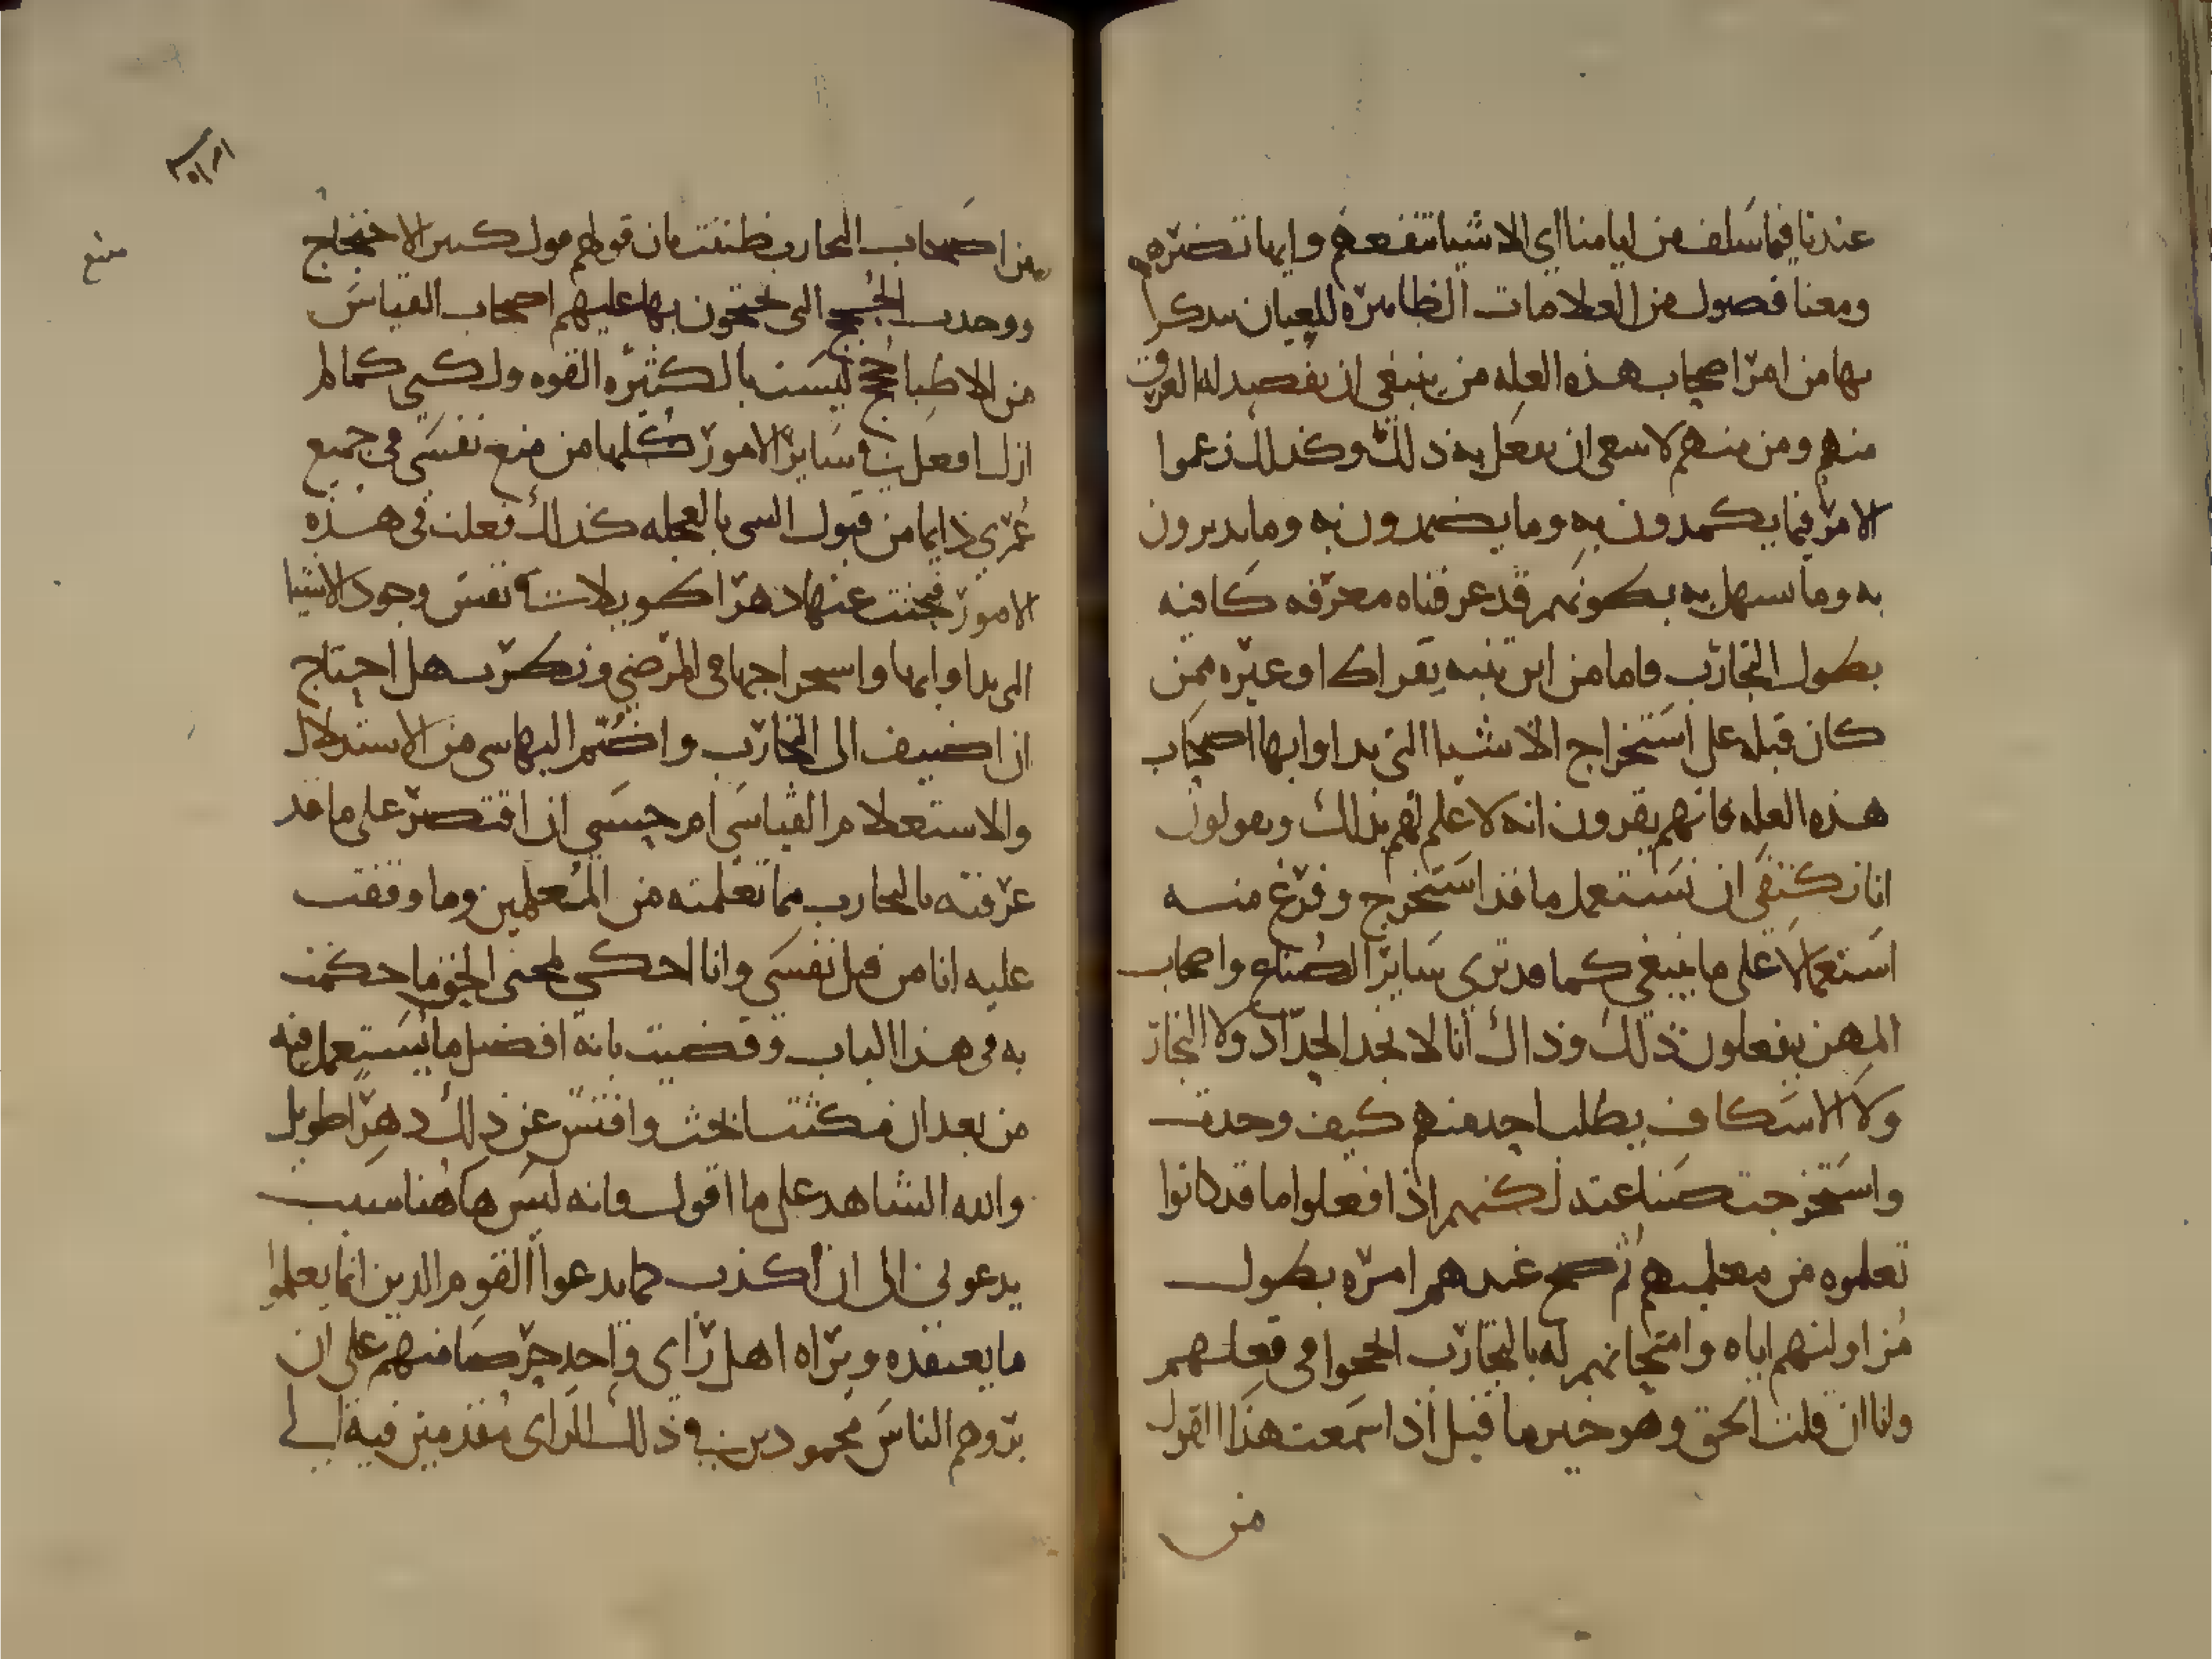 عندنا فيما سلف من ايامنا اي الاشيا تنفعهم وايها تضرهم
ومعنا فصول من العلامات الظاهره للعيان سدكر
بها من امر اصحاب هذه العله من ينبغي ان يفصد له العروق
منهم ومن منهم لا سعى ان يفعل به ذلك وكذلك زعموا
الامر فيما يكمدون به وما يضمدون به وما يدبرون
به وما يسهل به بطونهم قد عرفناه معرفه كافيه
بطول التجارب فاما من اين تنبه بقراط او غيره ممن
كان قبله على استخراج الاشيا التي يداوا بها اصحاب
هذه العله فانهم يقرون انه لا علم لهم بذلك ويقولون
انا نكتفي ان نستعمل ما قد استخرج وفرغ منه
استعمالا على ما ينبغي كما قد نرى ساير الصناع واصحاب
المهن يفعلون ذلك وذاك انا لا نجد الحداد ولا النجار
ولا الاسكاف يطلب احد منهم كيف وجدت
واستخرجت صناعته لكنهم اذا فعلوا ما قد كانوا
تعلموه من معلميهم ثم صح عندهم امره بطول
مزاولتهم اياه وامتحانهم له بالتجارب انجحوا في فعلهم
وانا ان قلت الحق وهو خير ما قيل اذا سمعت هذا القول
من
من اصحاب التجارب ظننت بان قولهم قول كبير الاحتجاج
ووجدت الحجج التي يحتجون بها عليهم اصحاب القياس
من الاطبا حجج ليست بالكثيره القوه ولكني كما لم
ازل افعل في ساير الامور كلها من منع نفسي في جميع
منع
عمري دايما من قبول الشي بالعجله كذلك فعلت في هذه
الامور فبحثت عنها دهرا طويلا نفس وجود الاشيا
التي يداوا بها واستخراجها في المرضى ونظرت هل احتاج
ان اضيف الى التجارب واضم اليها شي من الاستدلال
والاستعلام القياسي ام حسبي ان اقتصر على ما قد
عرفته بالتجارب مما تعلمته من المعلمين وما وقفت
عليه انا من قبل نفسي وانا احكي لمحبي الحق ما حكمت
به في هذا الباب وقضيت بانه افضل ما يستعمل فيه
من بعد ان مكثت ابحث وافتش عن ذلك دهرا طويل
والله الشاهد على ما اقول فانه ليس هاهنا سبب
يدعوني الى ان اكذب كما يدعوا القوم الدين انما يعلموا
ما يعتقده ويراه اهل راي واحد حرصا منهم على ان
يروهم الناس محمودين في ذلك الراي مقدمين فيه